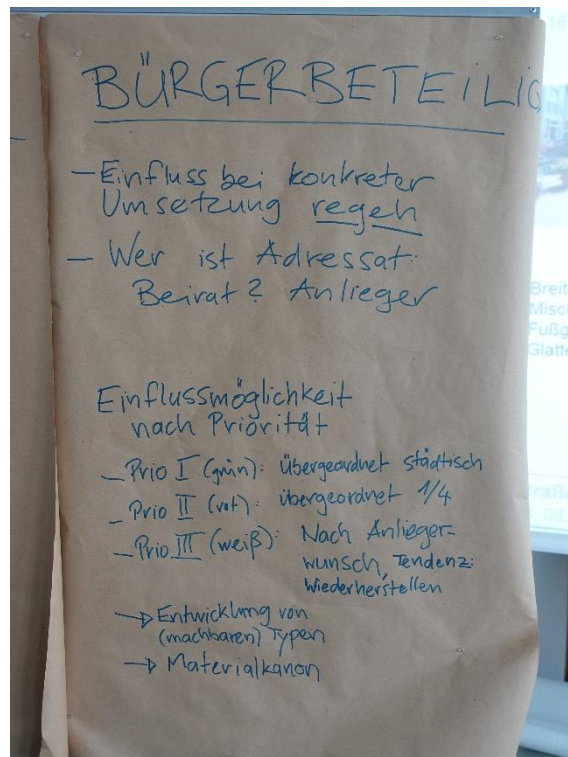 BÜRGERBETEILIG
– Einfluss bei konkreter
Umsetzung regeln
– Wer ist Adressat:
Beirat? Anlieger
Einflussmöglichkeit
nach Priorität
– Prio I (grün): übergeordnet städtisch
– Prio II (rot): übergeordnet 1/4
– Prio III (weiß): Nach Anlieger-
wunsch, Tendenz:
Wiederherstellen
→ Entwicklung von
(machbaren) Typen
→ Materialkanon
Breit
Misch
Fußg
Glatte